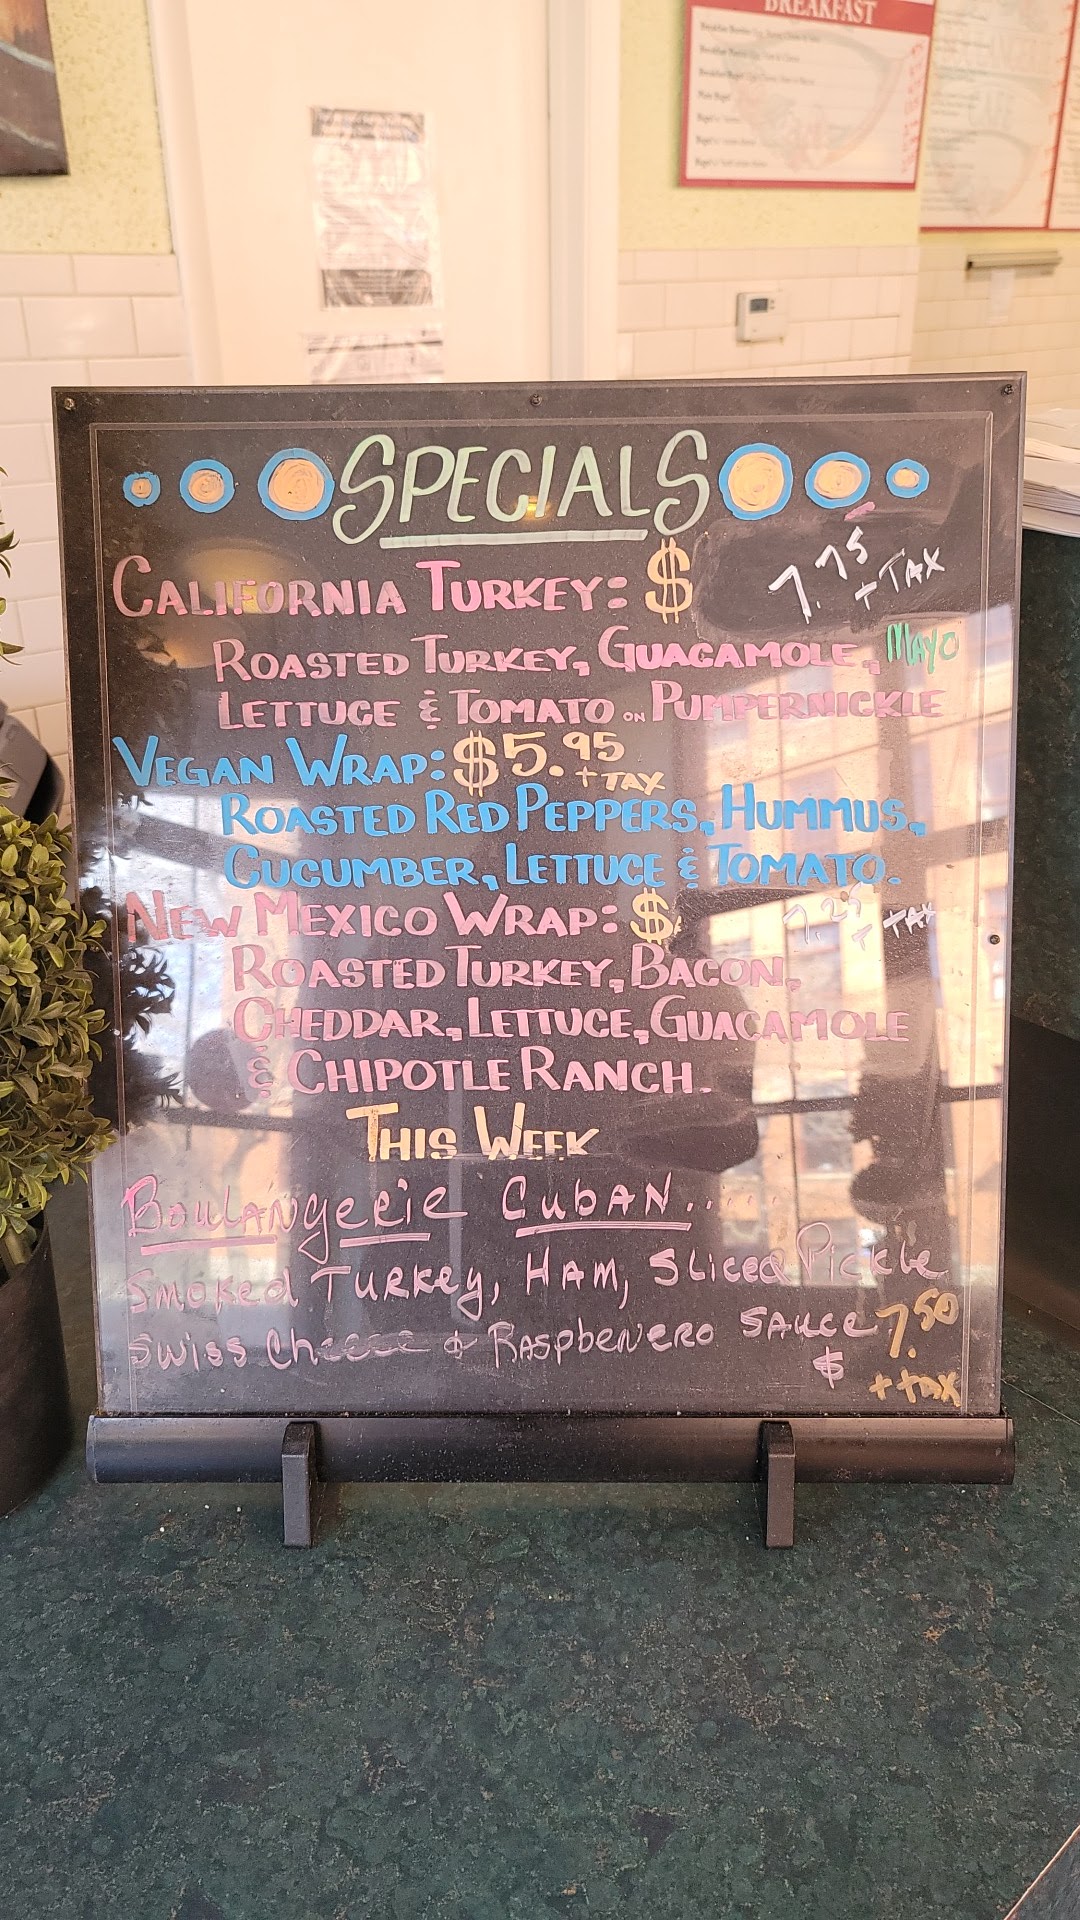 BREAKFAST
SPECIALS
CALIFORNIA TURKEY: $ 7.75 + TAX
ROASTED TURKEY, GUACAMOLE, MAYO
LETTUCE & TOMATO ON PUMPERNICKLE
VEGAN WRAP: $5.95 + TAX
ROASTED RED PEPPERS, HUMMUS,
CUCUMBER, LETTUCE & TOMATO.
NEW MEXICO WRAP: $ 7.25 + TAX
ROASTED TURKEY, BACON,
CHEDDAR, LETTUCE, GUACAMOLE
& CHIPOTLE RANCH.
THIS WEEK
BOULANgERIE CubAN.....
Smoked TURKey, HAM, SLiced Pickle
Swiss Cheese & RAspbenero SAuce 7.50
$ + tax